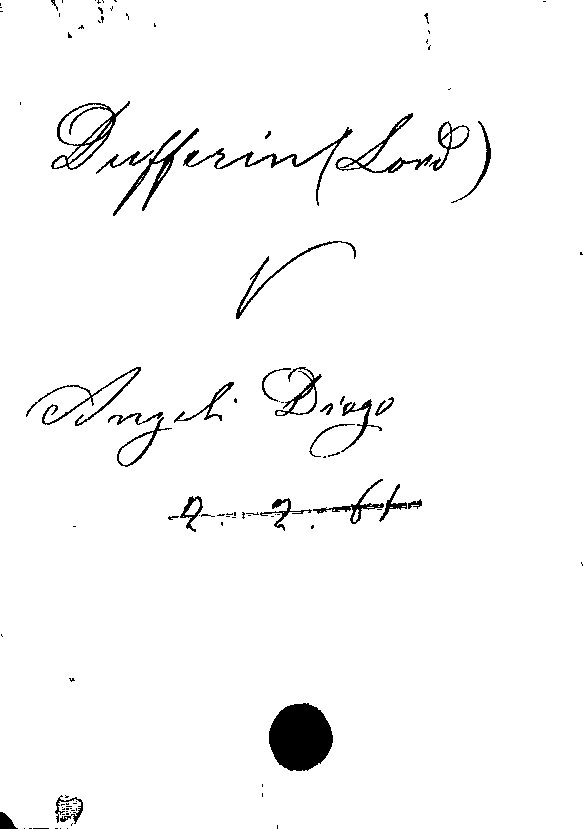 Dufferin (Lord)
V
Angeli Diego
2. 2. 61